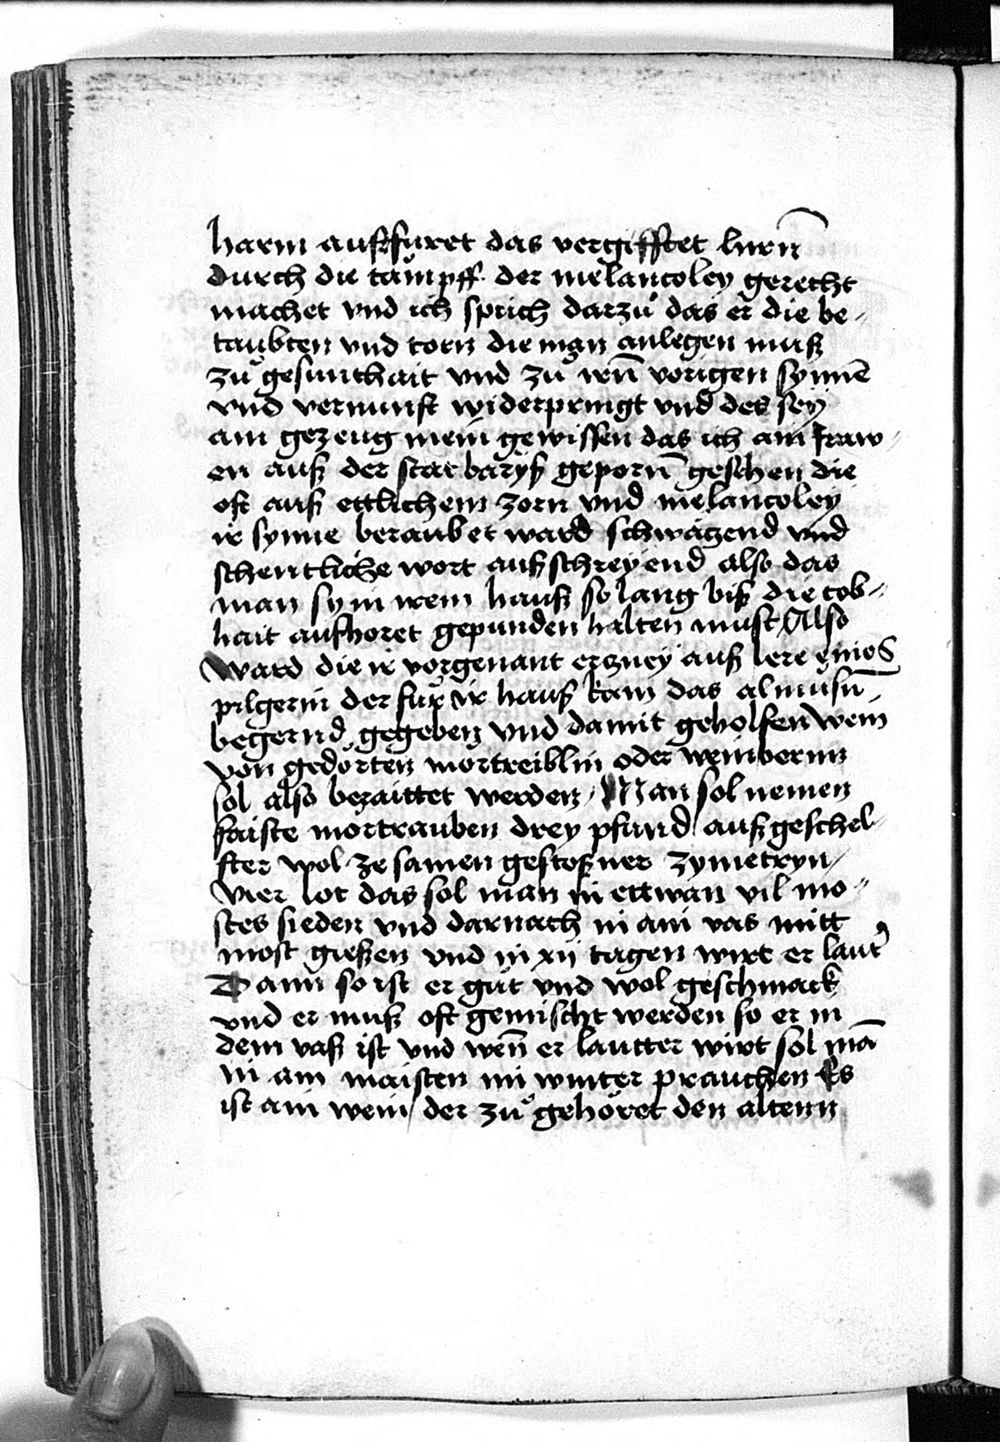 harm ausfüret das vergifftet hirñ
durch die tämpff der melancoley gerecht
machet vnd ich sprich darzů das er die be-
taubten vnd torn die man anlegen muß
zů gesunthait vnd zů irñ vorigen synnē
vnd vernunft widerpringt vnd des sey
ain gezeug mein gewissen das ich ain fraw-
en auß der stat baryß geporñ gesehen die
oft auß ettlichem zorn vnd melancoley
ir synne beraubet ward schwäzend vnd
schentliche wort auß schreyend also das
man sy in irem hauß so lang biß die tob-
hait aufhoret gepunden halten must Also
Ward die ir vorgenant erzney auß lere eynes
pilgerin der für ir hauß kam das almusñ
begernd gegeben vnd damit geholfen Wein
von gedörten mörtreiblin oder weinberinn
sol also bezaittet werden Man sol nemen
faiste mortrauben drey pfund auß geschel-
fter wol ze samen gestoßner zymetryn
vier lot das sol man in ettwan vil mo-
stes sieden vnd darnach in ain vas mitt
most gießen vnd in xij tagen wirt er laut'
Dann so ist er gůt vnd wol geschmack
vnd er muß oft gemischt werden so er in
dem vaß ist vnd weñ er lautter wirt sol mā
in am maisten im winter prauchen Es
ist ain wein der zů gehöret den altenn